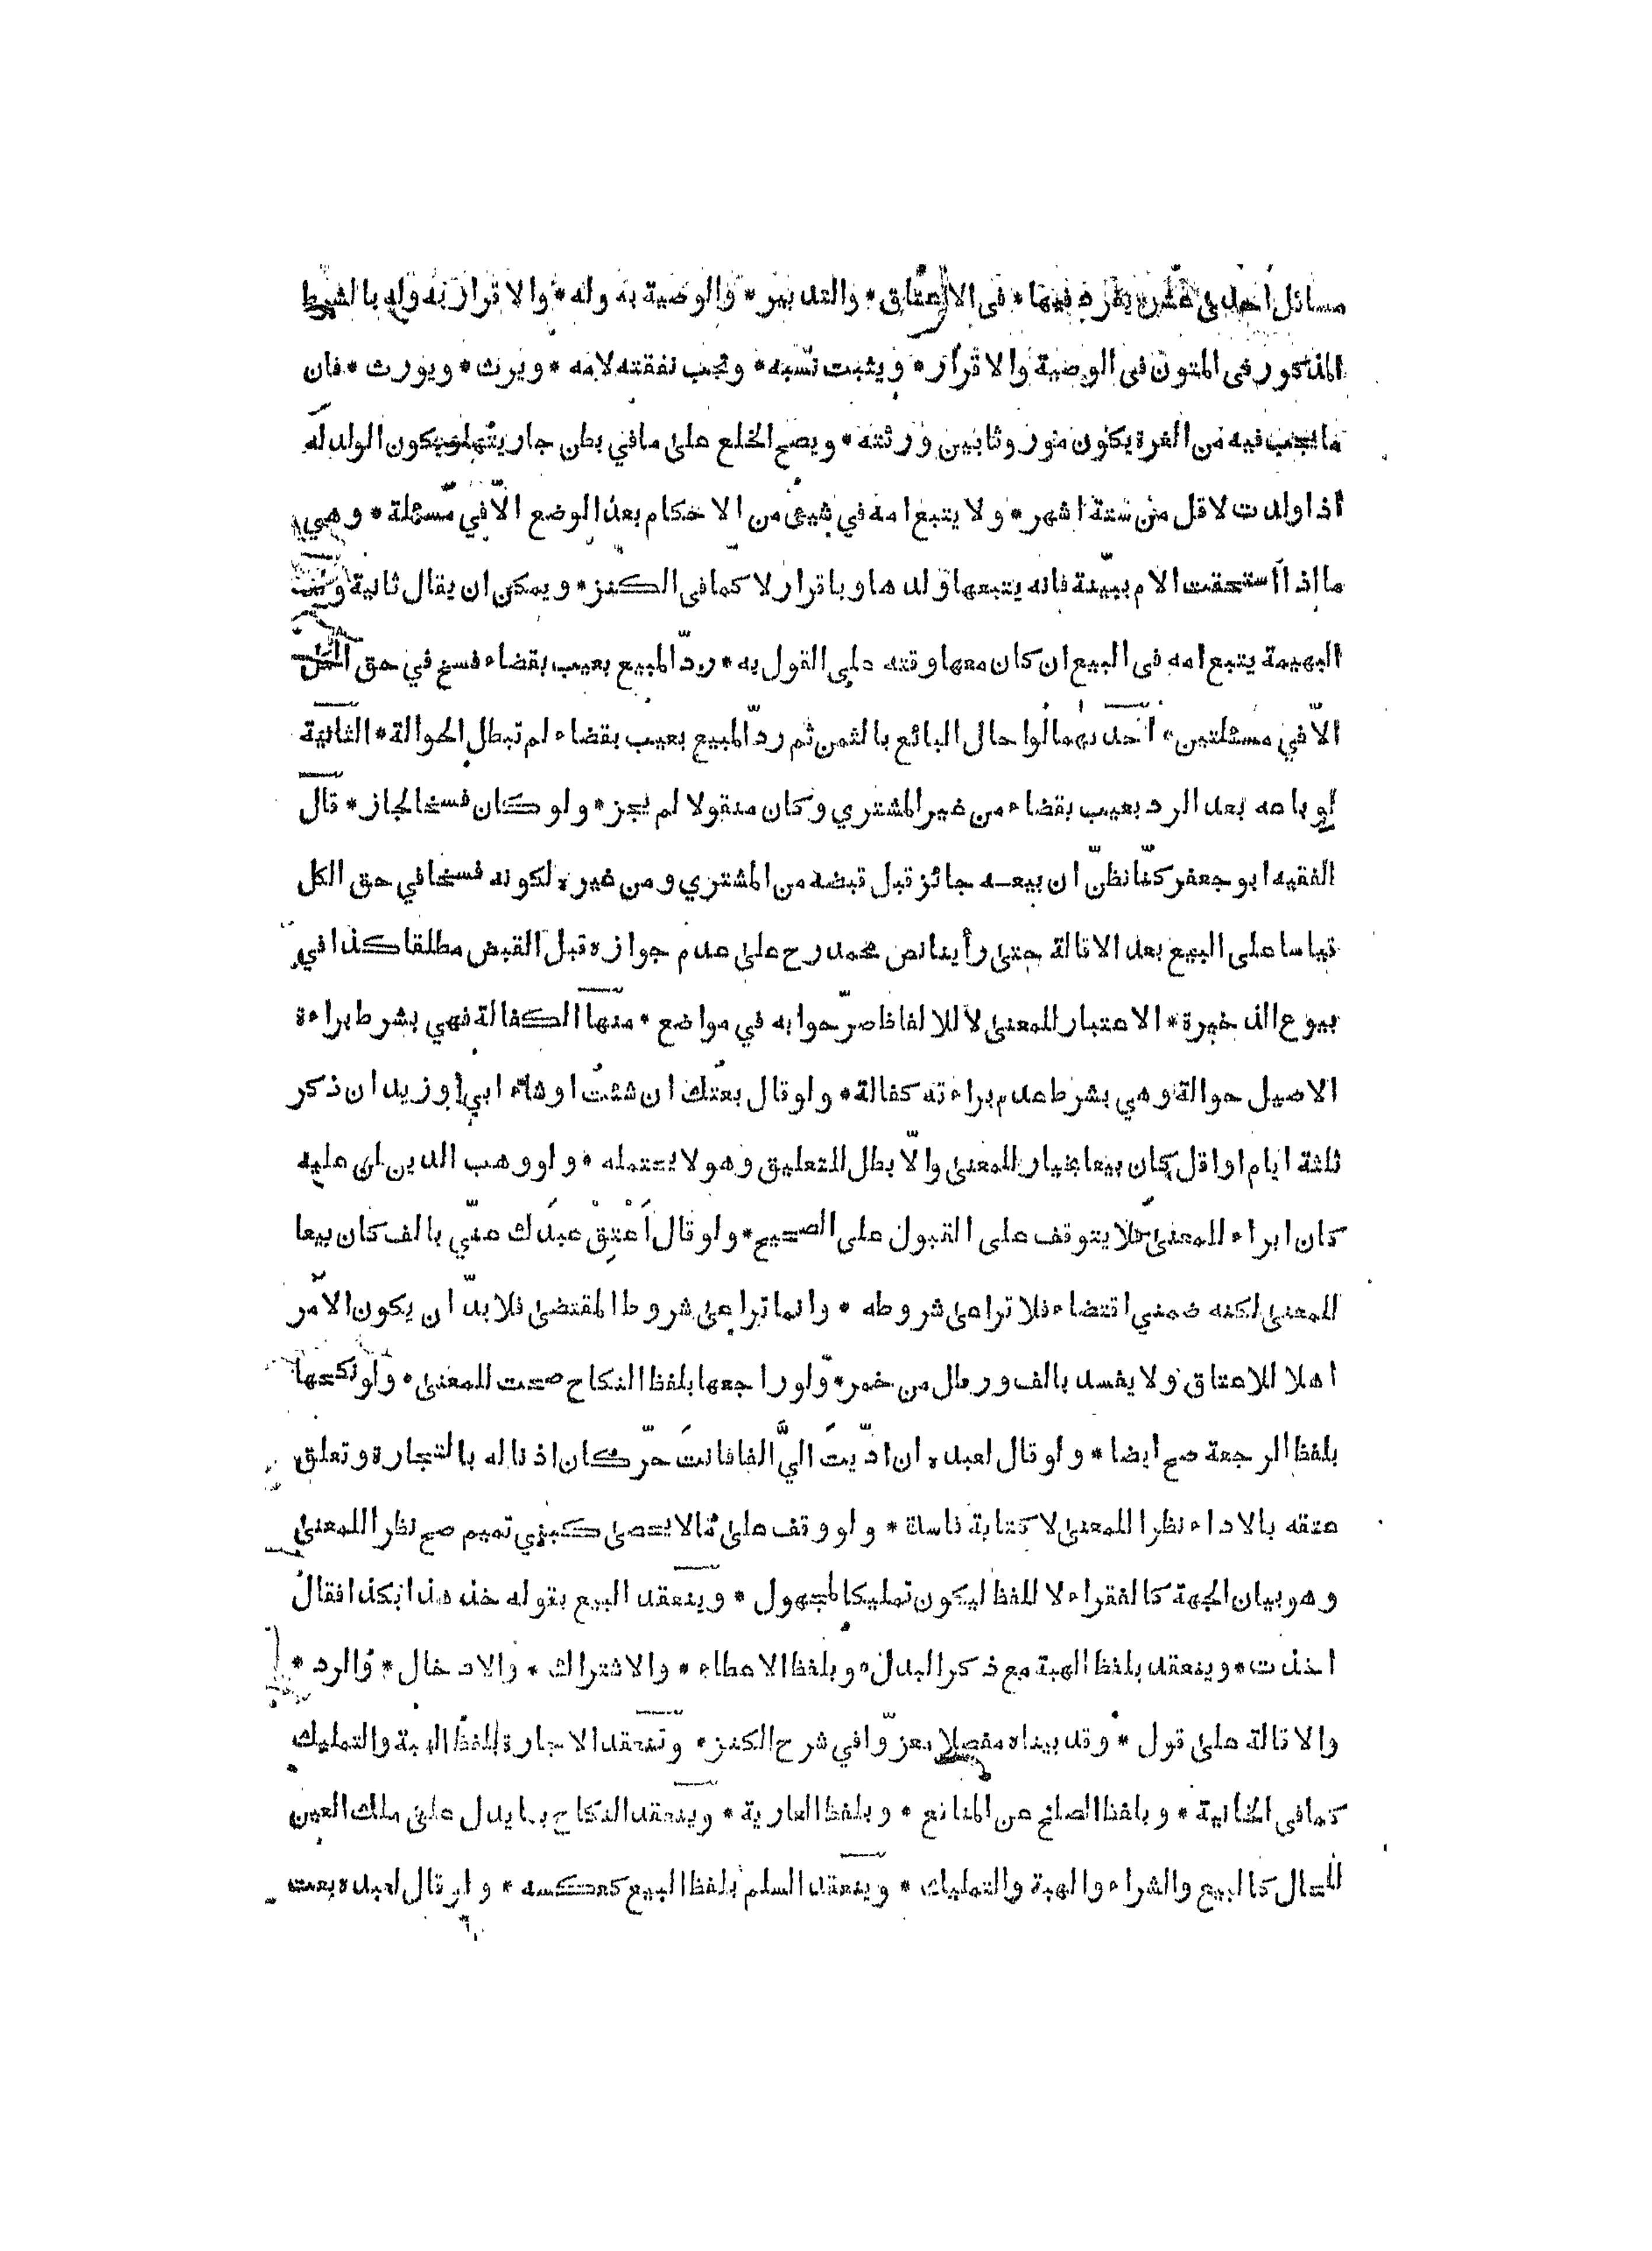 مسائل احدى عشرة يفرد فيها * فى الاعتاق * والتدبير * والوصية به وله * والاقرار به وله بالشرط
المذكور فى المتون فى الوصية والاقرار * ويثبت نسبه * وتجب نفقته لامه * ويرث * ويورث * فان
ما يجب فيه من الغرة يكون موروثا بين ورثته * ويصح الخلع على ما في بطن جاريتها ويكون الولد له
اذا ولدت لاقل من ستة اشهر * ولا يتبع امه في شيئ من الاحكام بعد الوضع الّا في مسئلة * وهي
ما اذا أستحقت الام ببيّنة فانه يتبعها ولدها وباقرار لا كما فى الكنز * ويمكن ان يقال ثانية ولد
البهيمة يتبع امه فى البيع ان كان معها وقته على القول به * ردّ المبيع بعيب بقضاء فسخ في حق الكل
الّا في مسئلتين * احديهما لوا حال البائع بالثمن ثم ردّ المبيع بعيب بقضاء لم تبطل الحوالة * الثانية
لو باعه بعد الرد بعيب بقضاء من غير المشتري وكان منقولا لم يجز * ولو كان فسخا لجاز * قال
الفقيه ابو جعفر كنّا نظنّ ان بيعه جائز قبل قبضه من المشتري ومن غيره لكونه فسخا في حق الكل
قياسا على البيع بعد الاقالة حتى رأينا نص محمد رح على عدم جوازه قبل القبض مطلقا كذا في
بيوع الذخيرة * الاعتبار للمعنى لا للالفاظ صرّحوا به في مواضع * منها الكفالة فهي بشرط براءة
الاصيل حوالة وهي بشرط عدم براءته كفالة * ولو قال بعتك ان شئت او شاء ابي او زيد ان ذكر
ثلثة ايام او اقل كان بيعا بخيار للمعنى والّا بطل للتعليق وهو لا يحتمله * ولو وهب الدين لمن عليه
كان ابراء للمعنى فلا يتوقف على القبول على الصحيح * ولو قال اَعْتِقْ عبدَك عنّي بالف كان بيعا
للمعنى لكنه ضمني اقتضاء فلا تراعى شروطه * وانما تراعى شروط المقتضى فلا بدّ ان يكون الآمر
اهلا للاعتاق ولا يفسد بالف ورطل من خمر * ولو راجعها بلفظ النكاح صحت للمعنى * ولو نكحها
بلفظ الرجعة صح ايضا * ولو قال لعبده ان ادّيتَ اليَّ الفا فانتَ حرّ كان اذنا له بالتجارة وتعلق
عتقه بالاداء نظرا للمعنى لا كتابة فاسدة * ولو وقف على ما لا يحصى كبني تميم صح نظرا للمعنى
وهو بيان الجهة كالفقراء لا للفظ ليكون تمليكا لمجهول * وينعقد البيع بقوله خذ هذا بكذا فقال
اخذت * وينعقد بلفظ الهبة مع ذكر البدل * وبلفظ الاعطاء * والاشتراك * والادخال * والرد *
والاقالة على قول * وقد بيناه مفصلا معزوّا في شرح الكنز * وتنعقد الاجارة بلفظ الهبة والتمليك
كما فى الخانية * وبلفظ الصلح عن المنافع * وبلفظ العارية * وينعقد النكاح بما يدل على ملك العين
للحال كالبيع والشراء والهبة والتمليك * وينعقد السلم بلفظ البيع كعكسه * ولو قال لعبده بعت